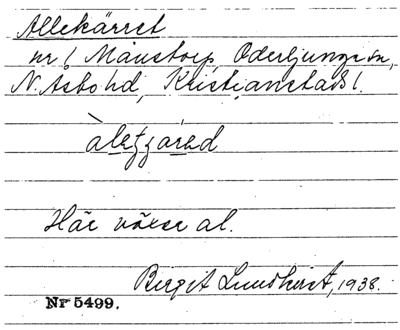 Allekärret
nr 1 Månstorp, Oderljunga sn,
N. Åsbo hd, Kristianstads l.
Här växer al.
Birgit Lundkvist, 1938.
Nr 5499.